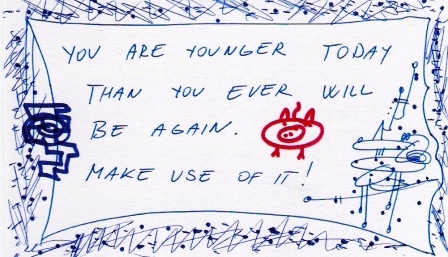 YOU ARE YOUNGER TODAY
THAN YOU EVER WILL
BE AGAIN.
MAKE USE OF IT!